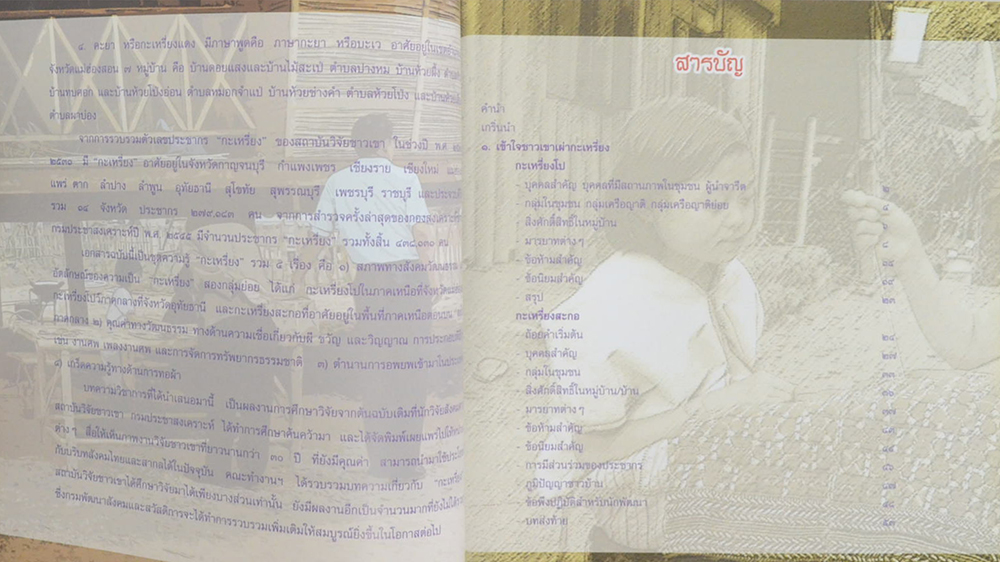 ๔. คะยา หรือกะเหรี่ยงแดง มีภาษาพูดคือ ภาษากะยา หรือบะเว อาศัยอยู่ในเขต
จังหวัดแม่ฮ่องสอน ๗ หมู่บ้าน คือ บ้านดอยแสงและบ้านไม้สะเป่ ตำบลปางหมู บ้านห้วยสิ่ง
บ้านทบศอก และบ้านห้วยโป่งอ่อน ตำบลหมอกจำแป่ บ้านห้วยช่างคำ ตำบลห้วยโป่ง และบ้าน
ตำบลผาบ่อง
จากการรวบรวมตัวเลขประชากร "กะเหรี่ยง" ของสถาบันวิจัยชาวเขา ในช่วงปี พ.ศ.
๒๕๓๑ มี "กะเหรี่ยง" อาศัยอยู่ในจังหวัดกาญจนบุรี กำแพงเพชร เชียงราย เชียงใหม่
แพร่ ตาก ลำปาง ลำพูน อุทัยธานี สุโขทัย สุพรรณบุรี เพชรบุรี ราชบุรี และประจวบ
รวม ๑๔ จังหวัด ประชากร ๒๗๙,๑๔๓ คน จากการสำรวจครั้งล่าสุดของกองสงเคราะห์
กรมประชาสงเคราะห์ปี พ.ศ. ๒๕๔๕ มีจำนวนประชากร "กะเหรี่ยง" รวมทั้งสิ้น ๔๓๘,๑๓๑ คน
เอกสารฉบับนี้เป็นชุดความรู้ "กะเหรี่ยง" รวม ๕ เรื่อง คือ ๑) สภาพทางสังคมวัฒนธรรม
อัตลักษณ์ของความเป็น "กะเหรี่ยง" สองกลุ่มย่อย ได้แก่ กะเหรี่ยงโปในภาคเหนือที่จังหวัด
กะเหรี่ยงโปว์ภาคกลางที่จังหวัดอุทัยธานี และกะเหรี่ยงสะกอที่อาศัยอยู่ในพื้นที่ภาคเหนือตอนบน
ภาคกลาง ๒) คุณค่าทางวัฒนธรรม ทางด้านความเชื่อเกี่ยวกับผี ขวัญ และวิญญาณ การประกอบ
เช่น งานศพ เพลงงานศพ และการจัดการทรัพยากรธรรมชาติ ๓) ตำนานการอพยพเข้ามาในประเทศ
๔) เกร็ดความรู้ทางด้านการทอผ้า
บทความวิชาการที่ได้นำเสนอมานี้ เป็นผลงานการศึกษาวิจัยจากต้นฉบับเดิมที่นักวิจัยสังคม
สถาบันวิจัยชาวเขา กรมประชาสงเคราะห์ ได้ทำการศึกษาค้นคว้ามา และได้จัดพิมพ์เผยแพร่ไป
ต่างๆ สื่อให้เห็นภาพงานวิจัยชาวเขาที่ยาวนานกว่า ๓๐ ปี ที่ยังมีคุณค่า สามารถนำมาใช้
กับบริบทสังคมไทยและสากลได้ในปัจจุบัน คณะทำงานฯ ได้รวบรวมบทความเกี่ยวกับ "กะเหรี่ยง
สถาบันวิจัยชาวเขาได้ศึกษาวิจัยมาได้เพียงบางส่วนเท่านั้น ยังมีผลงานอีกเป็นจำนวนมากที่ยังไม่ได้
ซึ่งกรมพัฒนาสังคมและสวัสดิการจะได้ทำการรวบรวมเพิ่มเติมให้สมบูรณ์ยิ่งขึ้นในโอกาสต่อไป
สารบัญ
คำนำ
เกริ่นนำ
๑. เข้าใจชาวเขาเผ่ากะเหรี่ยง
กะเหรี่ยงโป
- บุคคลสำคัญ บุคคลที่มีสถานภาพในชุมชน ผู้นำจารีต ๒
- กลุ่มในชุมชน กลุ่มเครือญาติ กลุ่มเครือญาติย่อย
- สิ่งศักดิ์สิทธิ์ในหมู่บ้าน
- มารยาทต่างๆ
- ข้อห้ามสำคัญ
- ข้อนิยมสำคัญ
- สรุป ๒๓
กะเหรี่ยงสะกอ
- ถ้อยคำเริ่มต้น ๒๔
- บุคคลสำคัญ ๒๗
- กลุ่มในชุมชน ๓๓
- สิ่งศักดิ์สิทธิ์ในหมู่บ้าน/บ้าน
- มารยาทต่างๆ ๓๗
- ข้อห้ามสำคัญ
- ข้อนิยมสำคัญ
- การมีส่วนร่วมของประชากร
- ภูมิปัญญาชาวบ้าน
- ข้อพึงปฏิบัติสำหรับนักพัฒนา
- บทส่งท้าย ๕๓